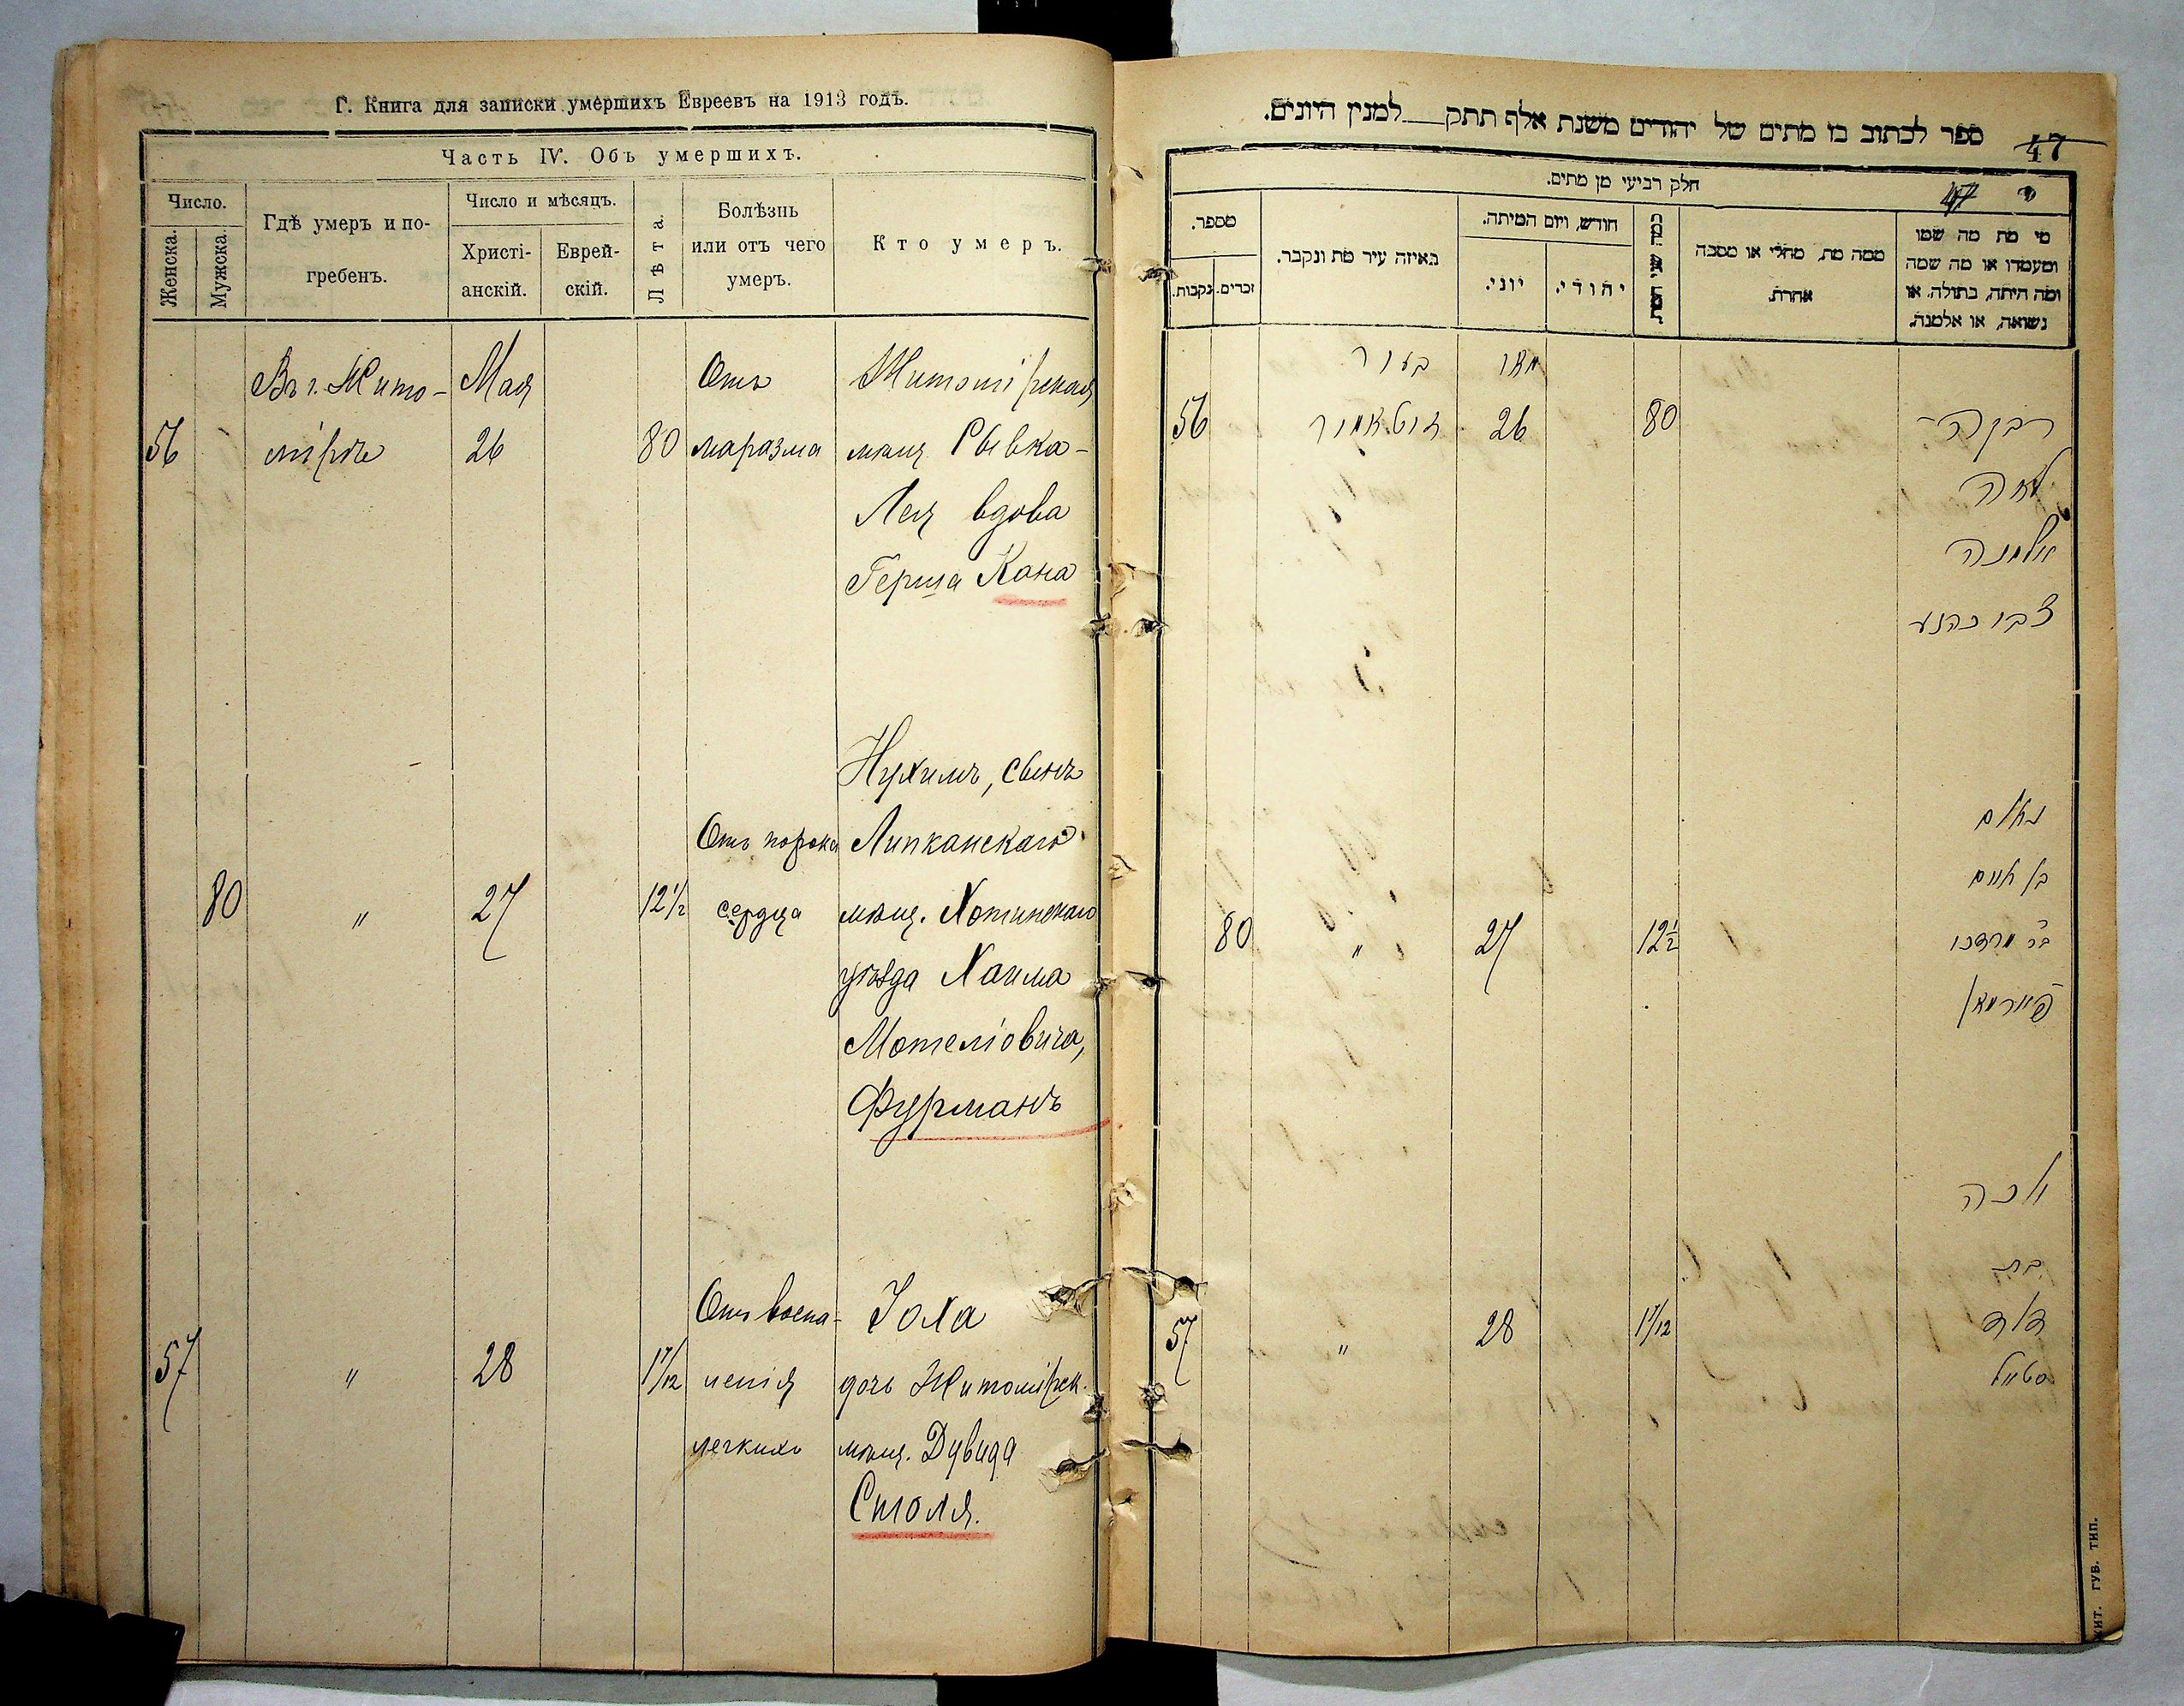 Г. Книга для записки умершихъ Евреевъ на 1913 годъ.
Часть IV. Объ умершихъ.
Число.
Женска.
Мужска.
Гдѣ умеръ и по-
гребенъ.
Число и мѣсяцъ.
Христі-
анскій.
Еврей-
скій.
Лѣта.
Болѣзнь
или отъ чего
умеръ.
Кто умеръ.
Въ г. Жито- Мая Отъ Житомірская
56 мірѣ 26 80 маразма мѣщ. Рывка-
Лея вдова
Герша Кана
Нухимъ, сынъ
Отъ порока Липканскаго
80 " 27 12 1/2 сердца мѣщ. Хотинскаго
уѣзда Хаима
Мотеліовича,
Фурманъ
Отъ воспа- Іоха
57 " 28 1 7/12 ленія дочь Житомірск.
легкихъ мѣщ. Дувида
Столя.
ספר לכתוב בו מתים של יהודים משנת אלף תתק למנין היונים.
47
חלק רביעי מן מתים.
מספר.
נקבות.
זכרים.
באיזה עיר מת ונקבר.
חודש, ויום המיתה.
יוני.
יהודי.
כמה שני המת
ממה מת, מחלי או מסבה
אחרת.
מי מת מה שמו
ומעמדו או מה שמה
ומה היתה, בתולה, או
נשואה, או אלמנה.
בעיר מאי
56 זיטאמיר 26 80 רבקה-
לאה
אלמנה
צבי כהנא
נאום
בן חיים
80 " 27 12 1/2 בר מרדכי
פורמאן
יאכה
בת
57 " 28 1 7/12 דוד
סטאל
ЖИТ. ГУБ. ТИП.